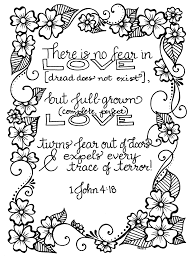 There is no fear in
LOVE
[dread does not exist],
but full-grown
(complete, perfect)
LOVE
turns fear out of doors
& expels every
trace of terror!
1 John 4:18